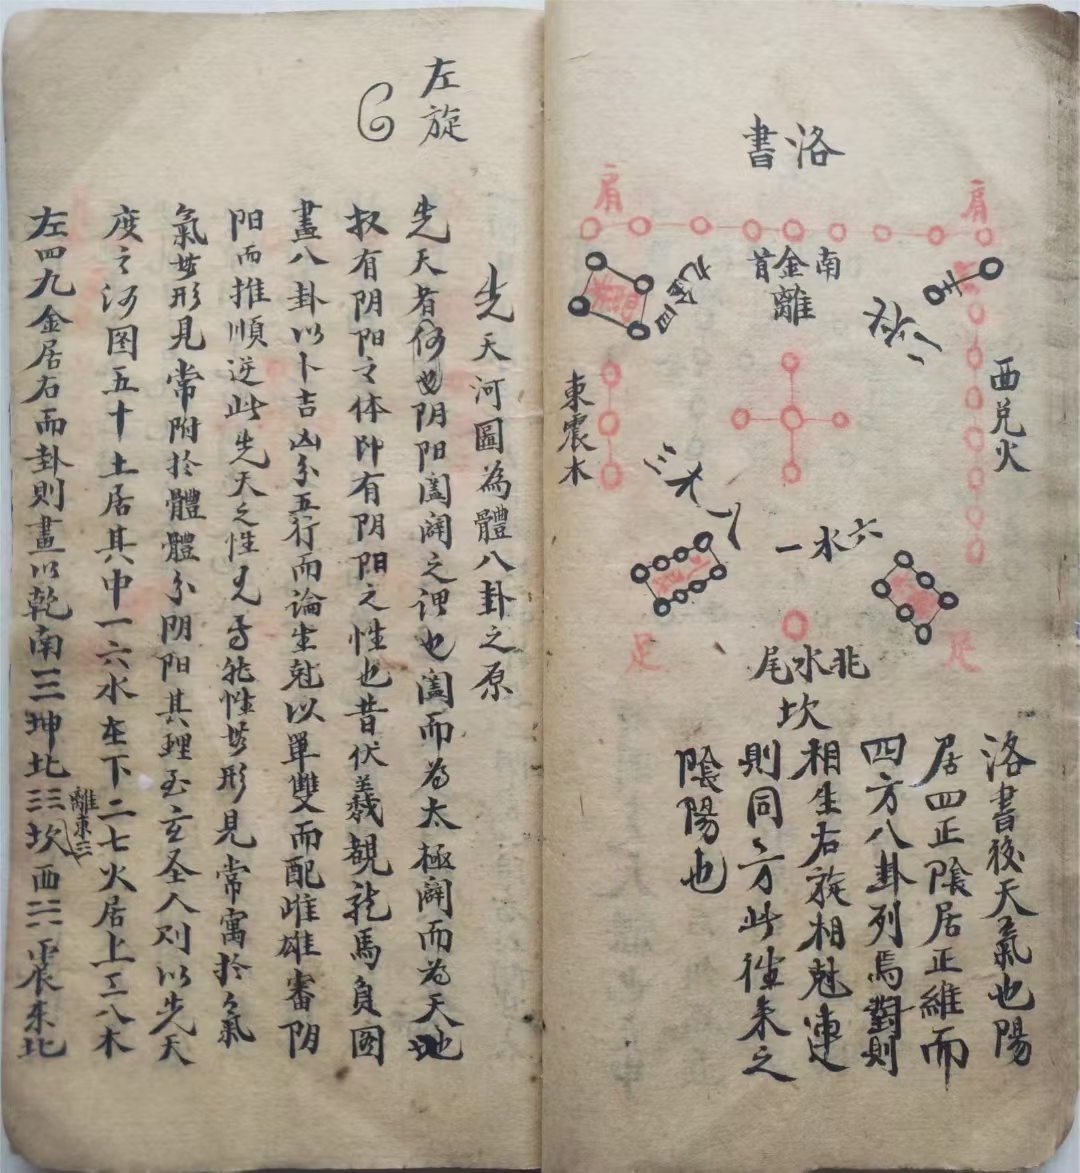 洛書
肩
肩
南
金
首
離
二
火
九金四
西兌火
東震木
三木八
六水一
足
足
北水尾
坎
洛書後天氣也陽
居四正陰居正維而
四方八卦列焉對則
相生右旋相尅連
則同方此徃来之
陰陽也
左旋
先天河圖為體八卦之原
先天者何也阴阳阖闢之理也阖而為太極闢而為天地
故有阴阳之体即有阴阳之性也昔伏羲覩龍馬負图
畫八卦以卜吉凶分五行而論生尅以單雙而配雌雄審阴
阳而推順逆此先天之性見于能性無形見常寓於氣
氣無形見常附於體體分阴阳其理至玄圣人则以先天
度之河图五十土居其中一六水在下二七火居上三八木
左四九金居右而卦則畫以乾南三坤北三坎西震東北
離東三